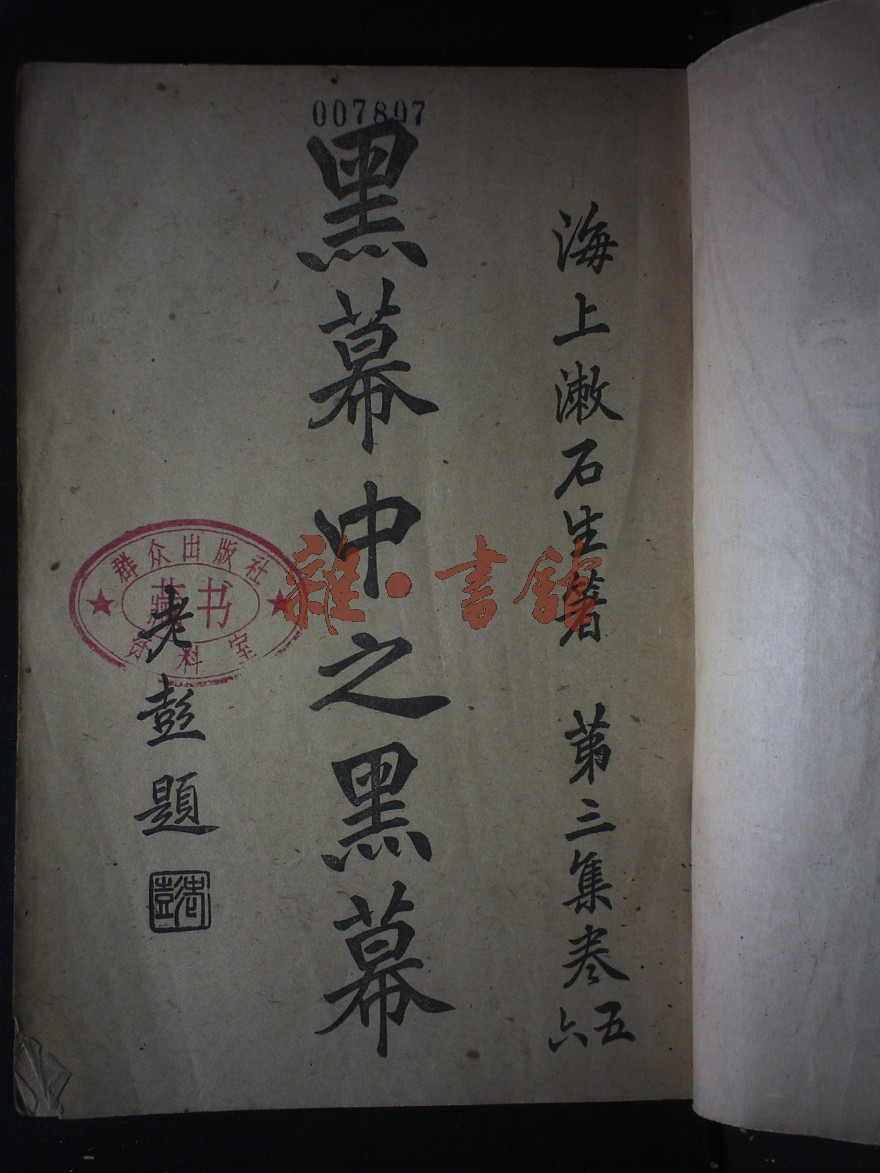 007807
海上漱石生著 第三集卷五六
黑幕中之黑幕
老彭題
老彭
群众出版社
藏书
资料室
雜·書館